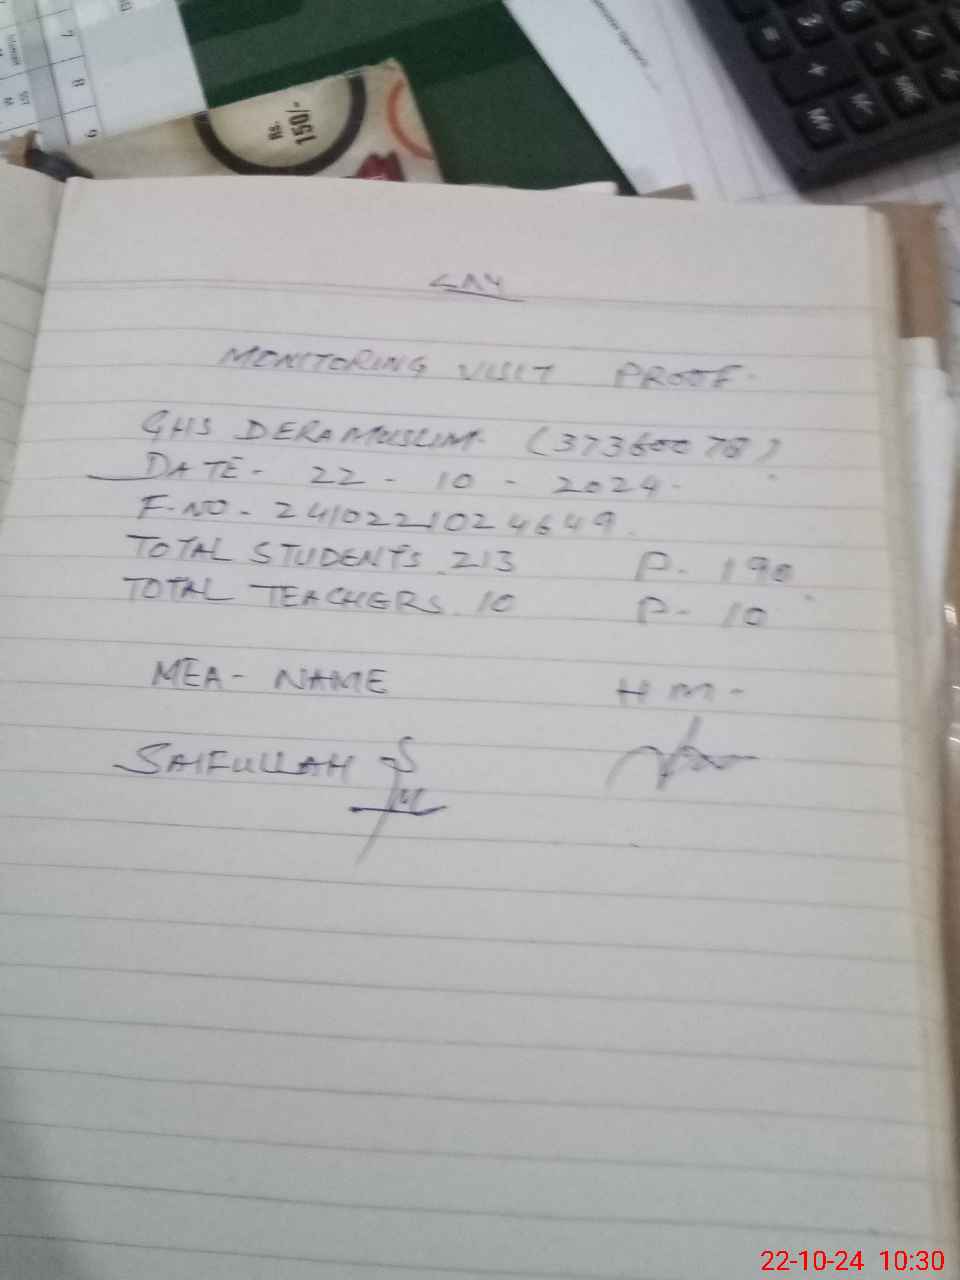 7
8
9
Rs.
150/-
3
6
=
+
-
x
÷
MONITORING VISIT PROOF.
GHS DERA MUSLIM. (37360078)
DATE - 22 - 10 - 2024.
F.NO - 2410221024649.
TOTAL STUDENTS. 213 P. 190
TOTAL TEACHERS. 10 P- 10
MEA - NAME HM-
SAIFULLAH
22-10-24 10:30